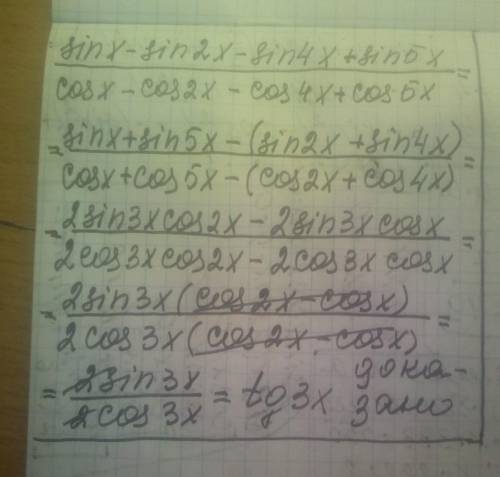 sinx-sin2x-sin4x+sin5x
cosx-cos2x-cos4x+cos5x =
= sinx+sin5x-(sin2x+sin4x)
cosx+cos5x-(cos2x+cos4x) =
= 2sin3xcos2x-2sin3xcosx
2cos3xcos2x-2cos3xcosx =
= 2sin3x(cos2x-cosx)
2cos3x(cos2x-cosx) =
= 2sin3x
2cos3x = tg3x дока-
зано